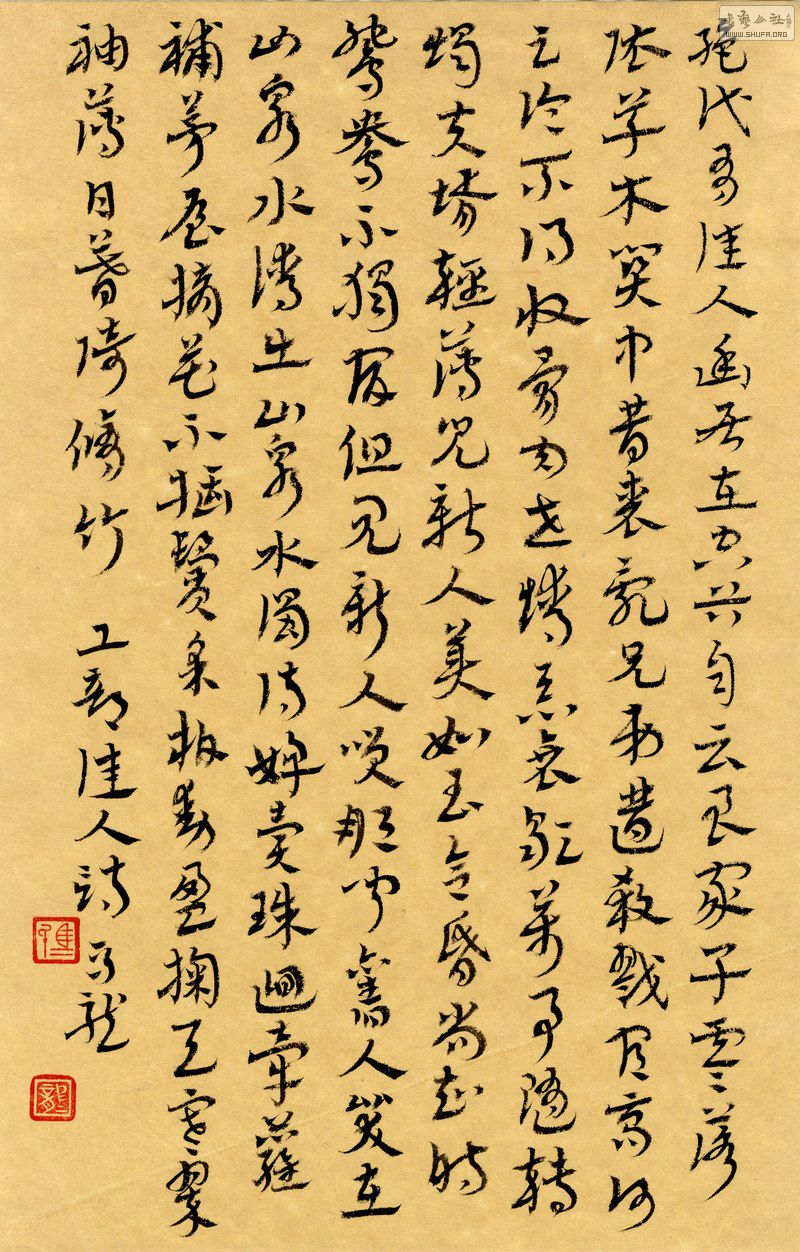 書藝公社
WWW.SHUFA.ORG
絕代有佳人幽居在空谷自云良家子零落
依草木關中昔喪亂兄弟遭殺戮官高何
足論不得收骨肉世情惡衰歇萬事隨轉
燭夫壻輕薄兒新人美如玉合昏尚知時
鴛鴦不獨宿但見新人笑那聞舊人哭在
山泉水清出山泉水濁侍婢賣珠迴牽蘿
補茅屋摘花不插鬢采柏動盈掬天寒翠
袖薄日暮倚脩竹 工部佳人詩 龍